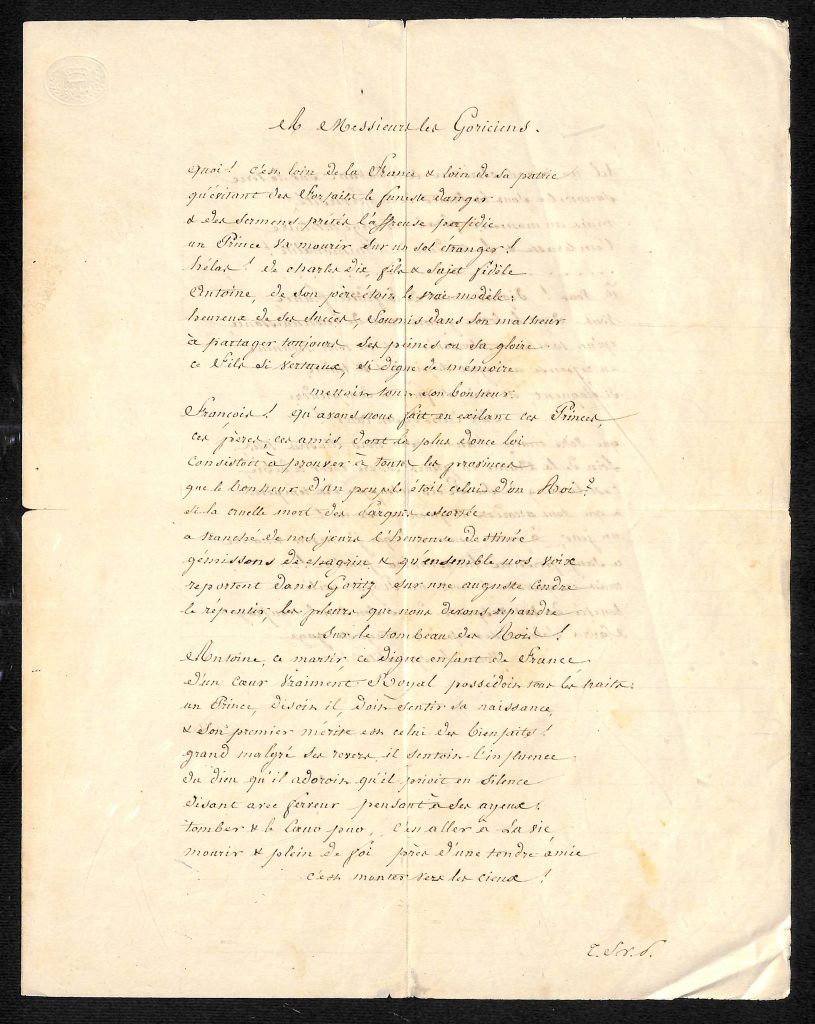 A Messieurs les Goriciens.
quoi! c'est loin de la France & loin de sa patrie
qu'évitant des Forfaits le funeste danger
& des sermens prêtés l'affreuse perfidie
un Prince va mourir sur un sol étranger!
hélas! de charles dix, fils & sujet fidèle
Antoine, de son père étoit le vrai modèle;
heureux de ses succès, soumis dans son malheur
à partager toujours ses peines ou sa gloire
ce Fils si vertueux, si digne de mémoire
mettoit tout son bonheur.
François! qu'avons nous fait en exilant ces Princes,
ces frères, ces amis, dont la plus douce loi
consistoit à prouver à toutes les provinces
que le bonheur d'un peuple étoit celui d'un Roi?
et la cruelle mort des Parques escortée
a tranché de nos jours l'heureuse destinée
gémissons de chagrin & qu'ensemble nos voix
reportent dans Goritz sur une auguste Cendre
le repentir, les pleurs que nous devons répandre
sur le tombeau des Rois!
Antoine, ce martir, ce digne enfant de France
d'un cœur vraiment Royal possédoit tous les traits:
un Prince, disoit il, doit sentir sa naissance,
& son premier mérite est celui des bienfaits!
grand malgré ses revers, il sentoit l'influence
du dieu qu'il adoroit qu'il prioit en silence
disant avec ferveur pensant à ses ayeux:
tomber & le cœur pur, c'est aller à La vie,
mourir & plein de foi près d'une tendre amie
c'est monter vers les cieux!